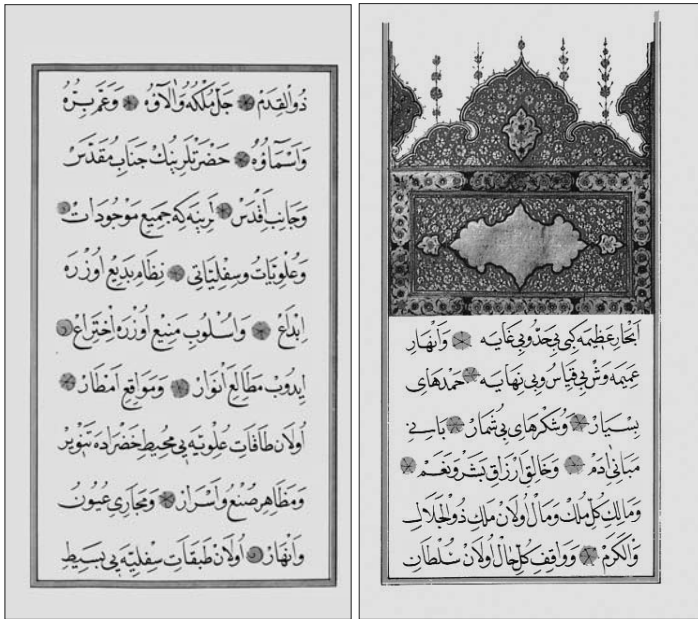 ابحار عظیمه کبی بی حد و بی غایه وانهار
عمیمه وش بی قیاس و بی نهایه حمدهای
بسیار و شکرهای بی شمار باسنی
مبانی آدم و خالق ارزاق بشر و نعم
ومالك كل ملك ومال اولان ملك ذو الجلال
والكرم وواقف كل حال اولان سلطان
ذو القدم جل ملكه والآؤه وعم بره
واسماؤه حضرتلرینك جناب مقدس
وجانب اقدس لرینه که جمیع موجودات
وعلویات وسفلیاتی نظام بدیع اوزره
ابداع واسلوب منیع اوزره اختراع
ایدوب مطالع انوار ومواقع امطار
اولان طاقات علویه یی محیط خضراده تنویر
ومظاهر صنع واسرار ومجاری عیون
وانهار اولان طبقات سفلیه یی بسیط